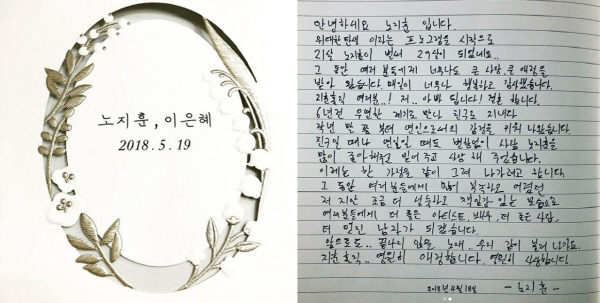 노지훈, 이은혜
2018. 5. 19
안녕하세요 노지훈 입니다.
위대한탄생 이라는 프로그램을 시작으로
21살 노지훈이 벌써 29살이 되었네요..
그 동안 여러분들에게 너무나도 큰 사랑, 큰 애정을
받아 왔습니다. 매일이 너무나 행복하고 감사했습니다.
지훈홀릭 여러분..! 저.. 아빠 됩니다! 결혼 합니다.
6년전 우연한 계기로 만나 친구로 지내다
작년 말 쯤 부터 연인으로써의 감정을 키워 나왔습니다.
친구일 때나 연인일 때도 변함없이 사람 노지훈을
많이 좋아해주고 믿어 주고 사랑해 주었습니다.
이제는 한 가정을 같이 그려 나가려고 합니다.
그 동안 여러분들에게 많이 부족하고 어렸던
저 지만 조금 더 성숙하고 책임감 있는 모습으로
여러분들에게 더 좋은 아티스트, 배우, 더 좋은 사람,
더 멋진 남자가 되겠습니다.
앞으로도.. 끝나지 않은 노래.. 우리 같이 불러 나가요.
지훈홀릭.. 영원히 애정합니다. 영원히 사랑합니다!
2018년 4월 18일
- 노지훈 -